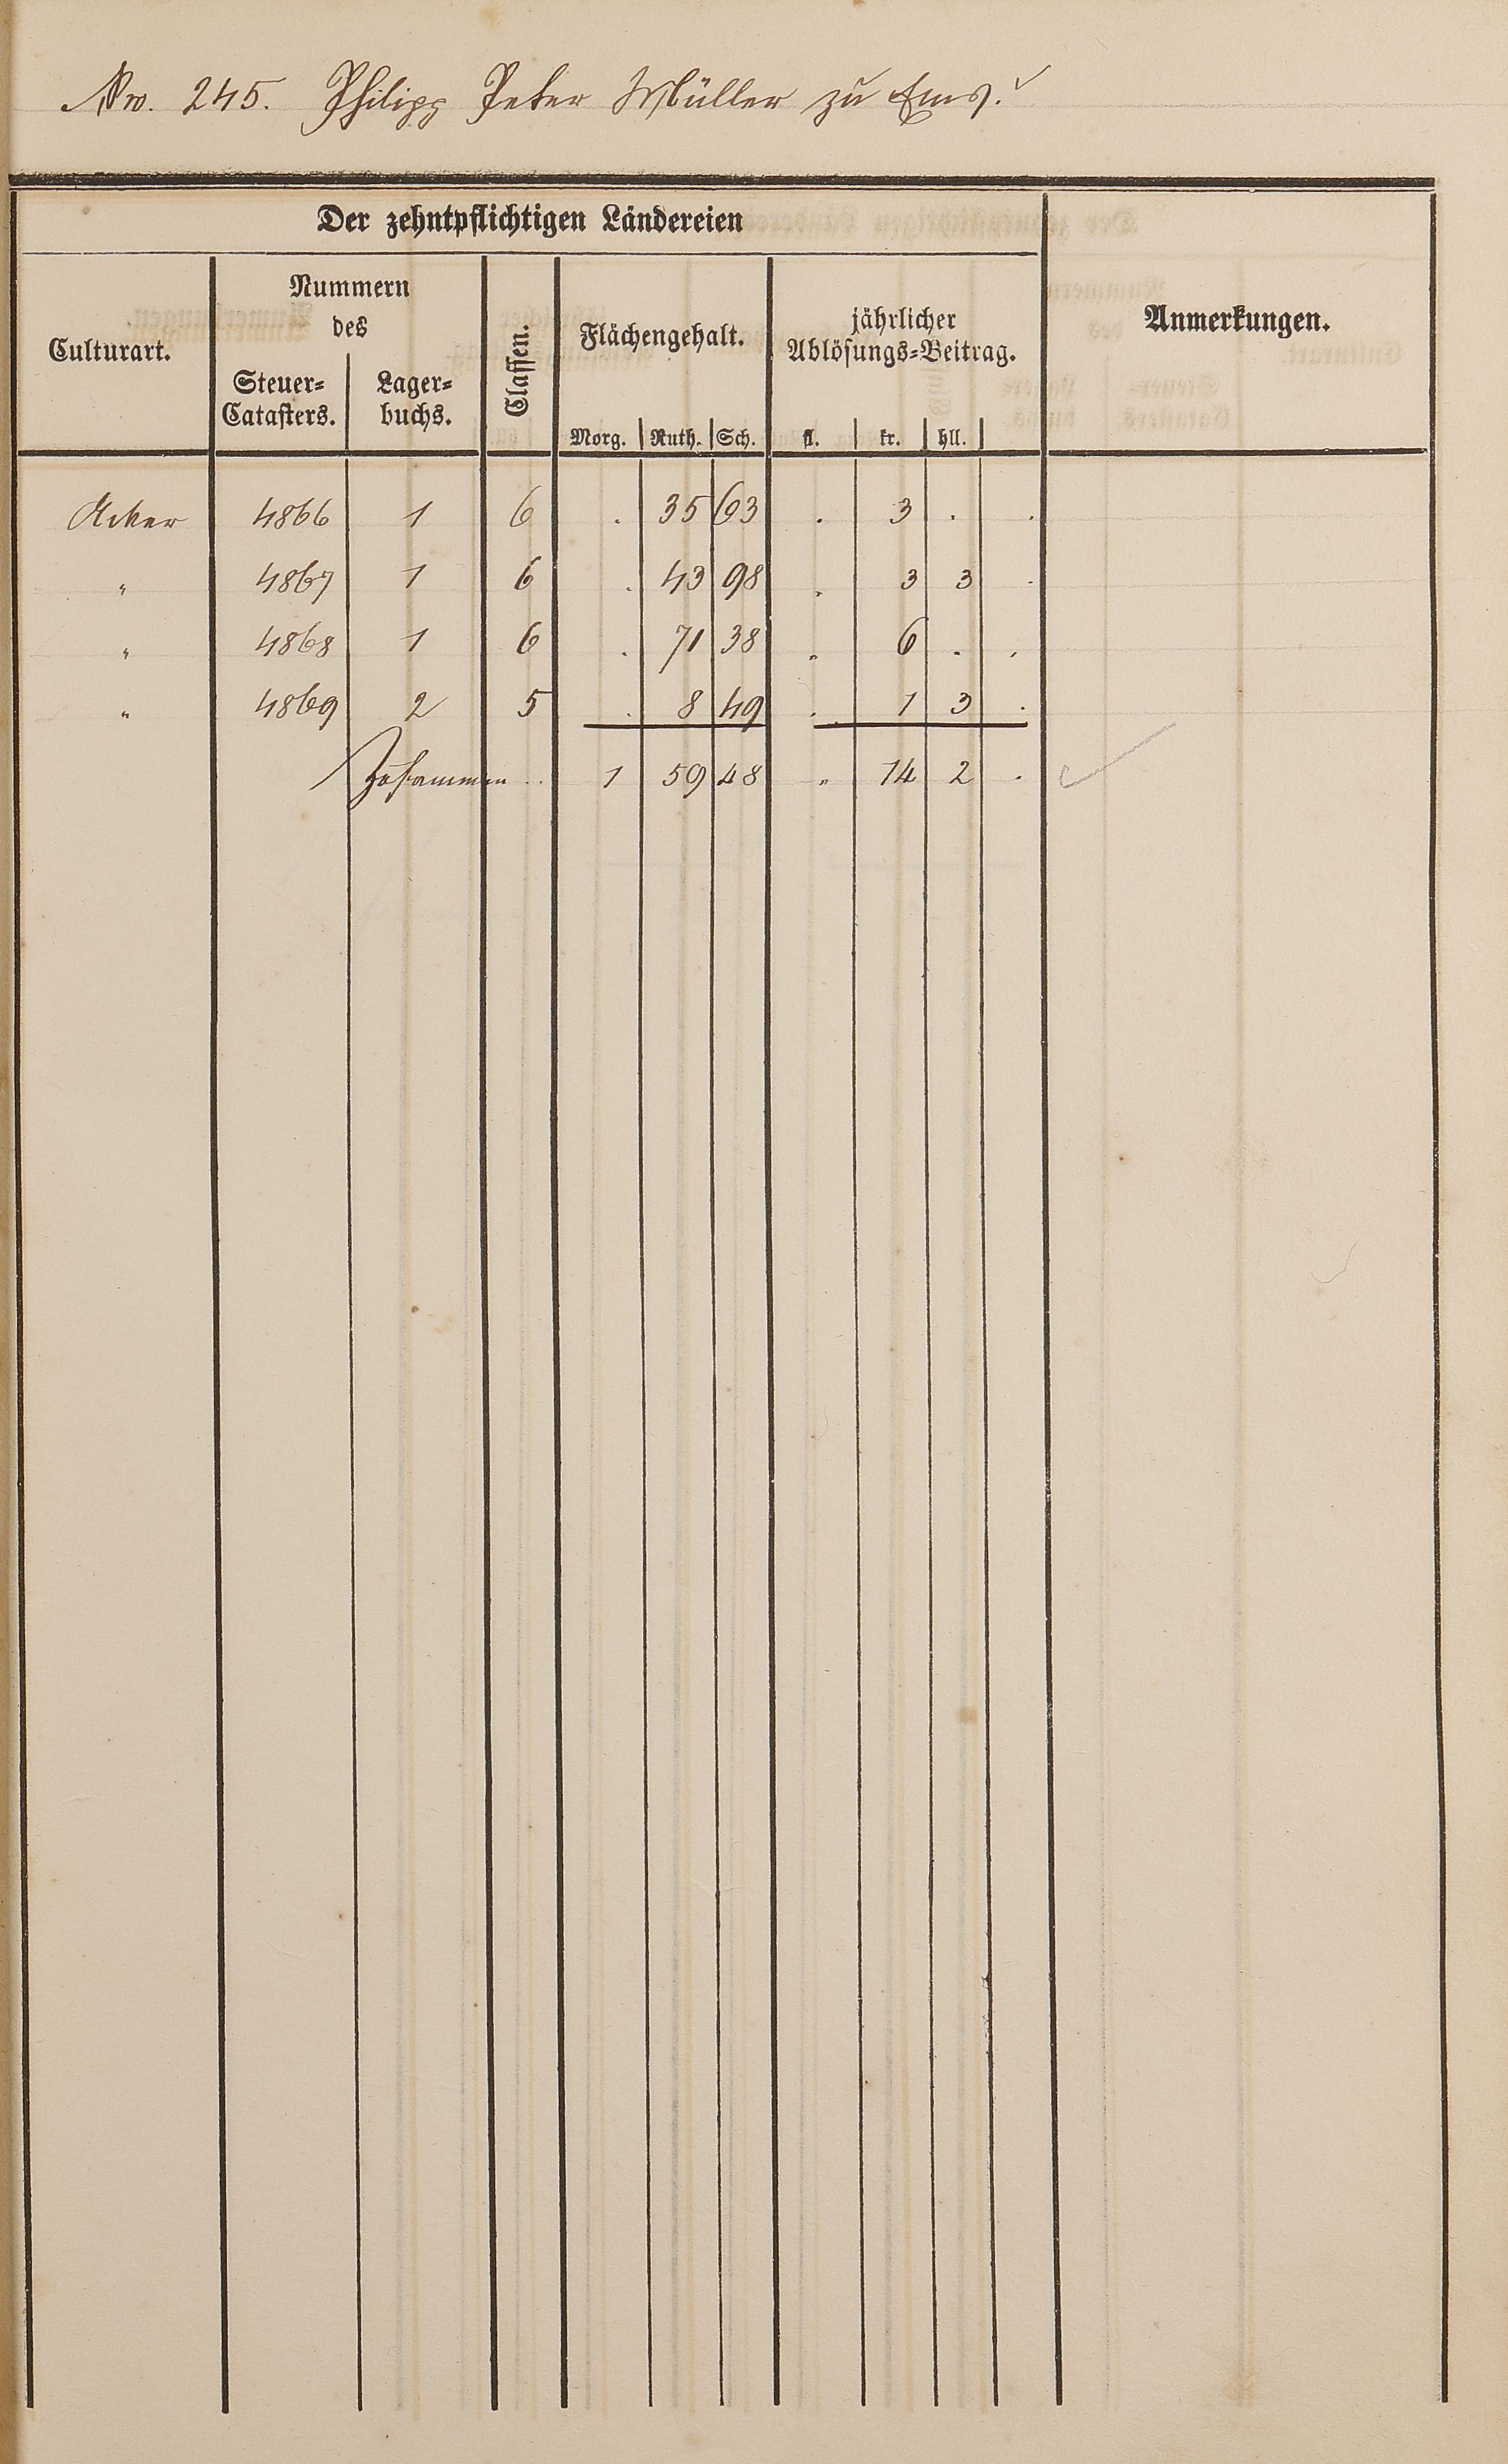 No. 245. Philipp Peter Müller zu Ems.
Der zehntpflichtigen Ländereien
Culturart.
Nummern
des
Steuer=
Catasters.
Lager=
buchs.
Classen.
Flächengehalt.
Morg. Ruth. Sch.
jährlicher
Ablösungs=Beitrag.
fl. kr. hll.
Anmerkungen.
Acker 4866 1 6 . 35 63 . 3 . .
" 4867 1 6 . 43 98 . 3 3 .
" 4868 1 6 . 71 38 . 6 . .
" 4869 2 5 . 8 49 . 1 3 .
Zusammen .. 1 59 48 " 14 2 .